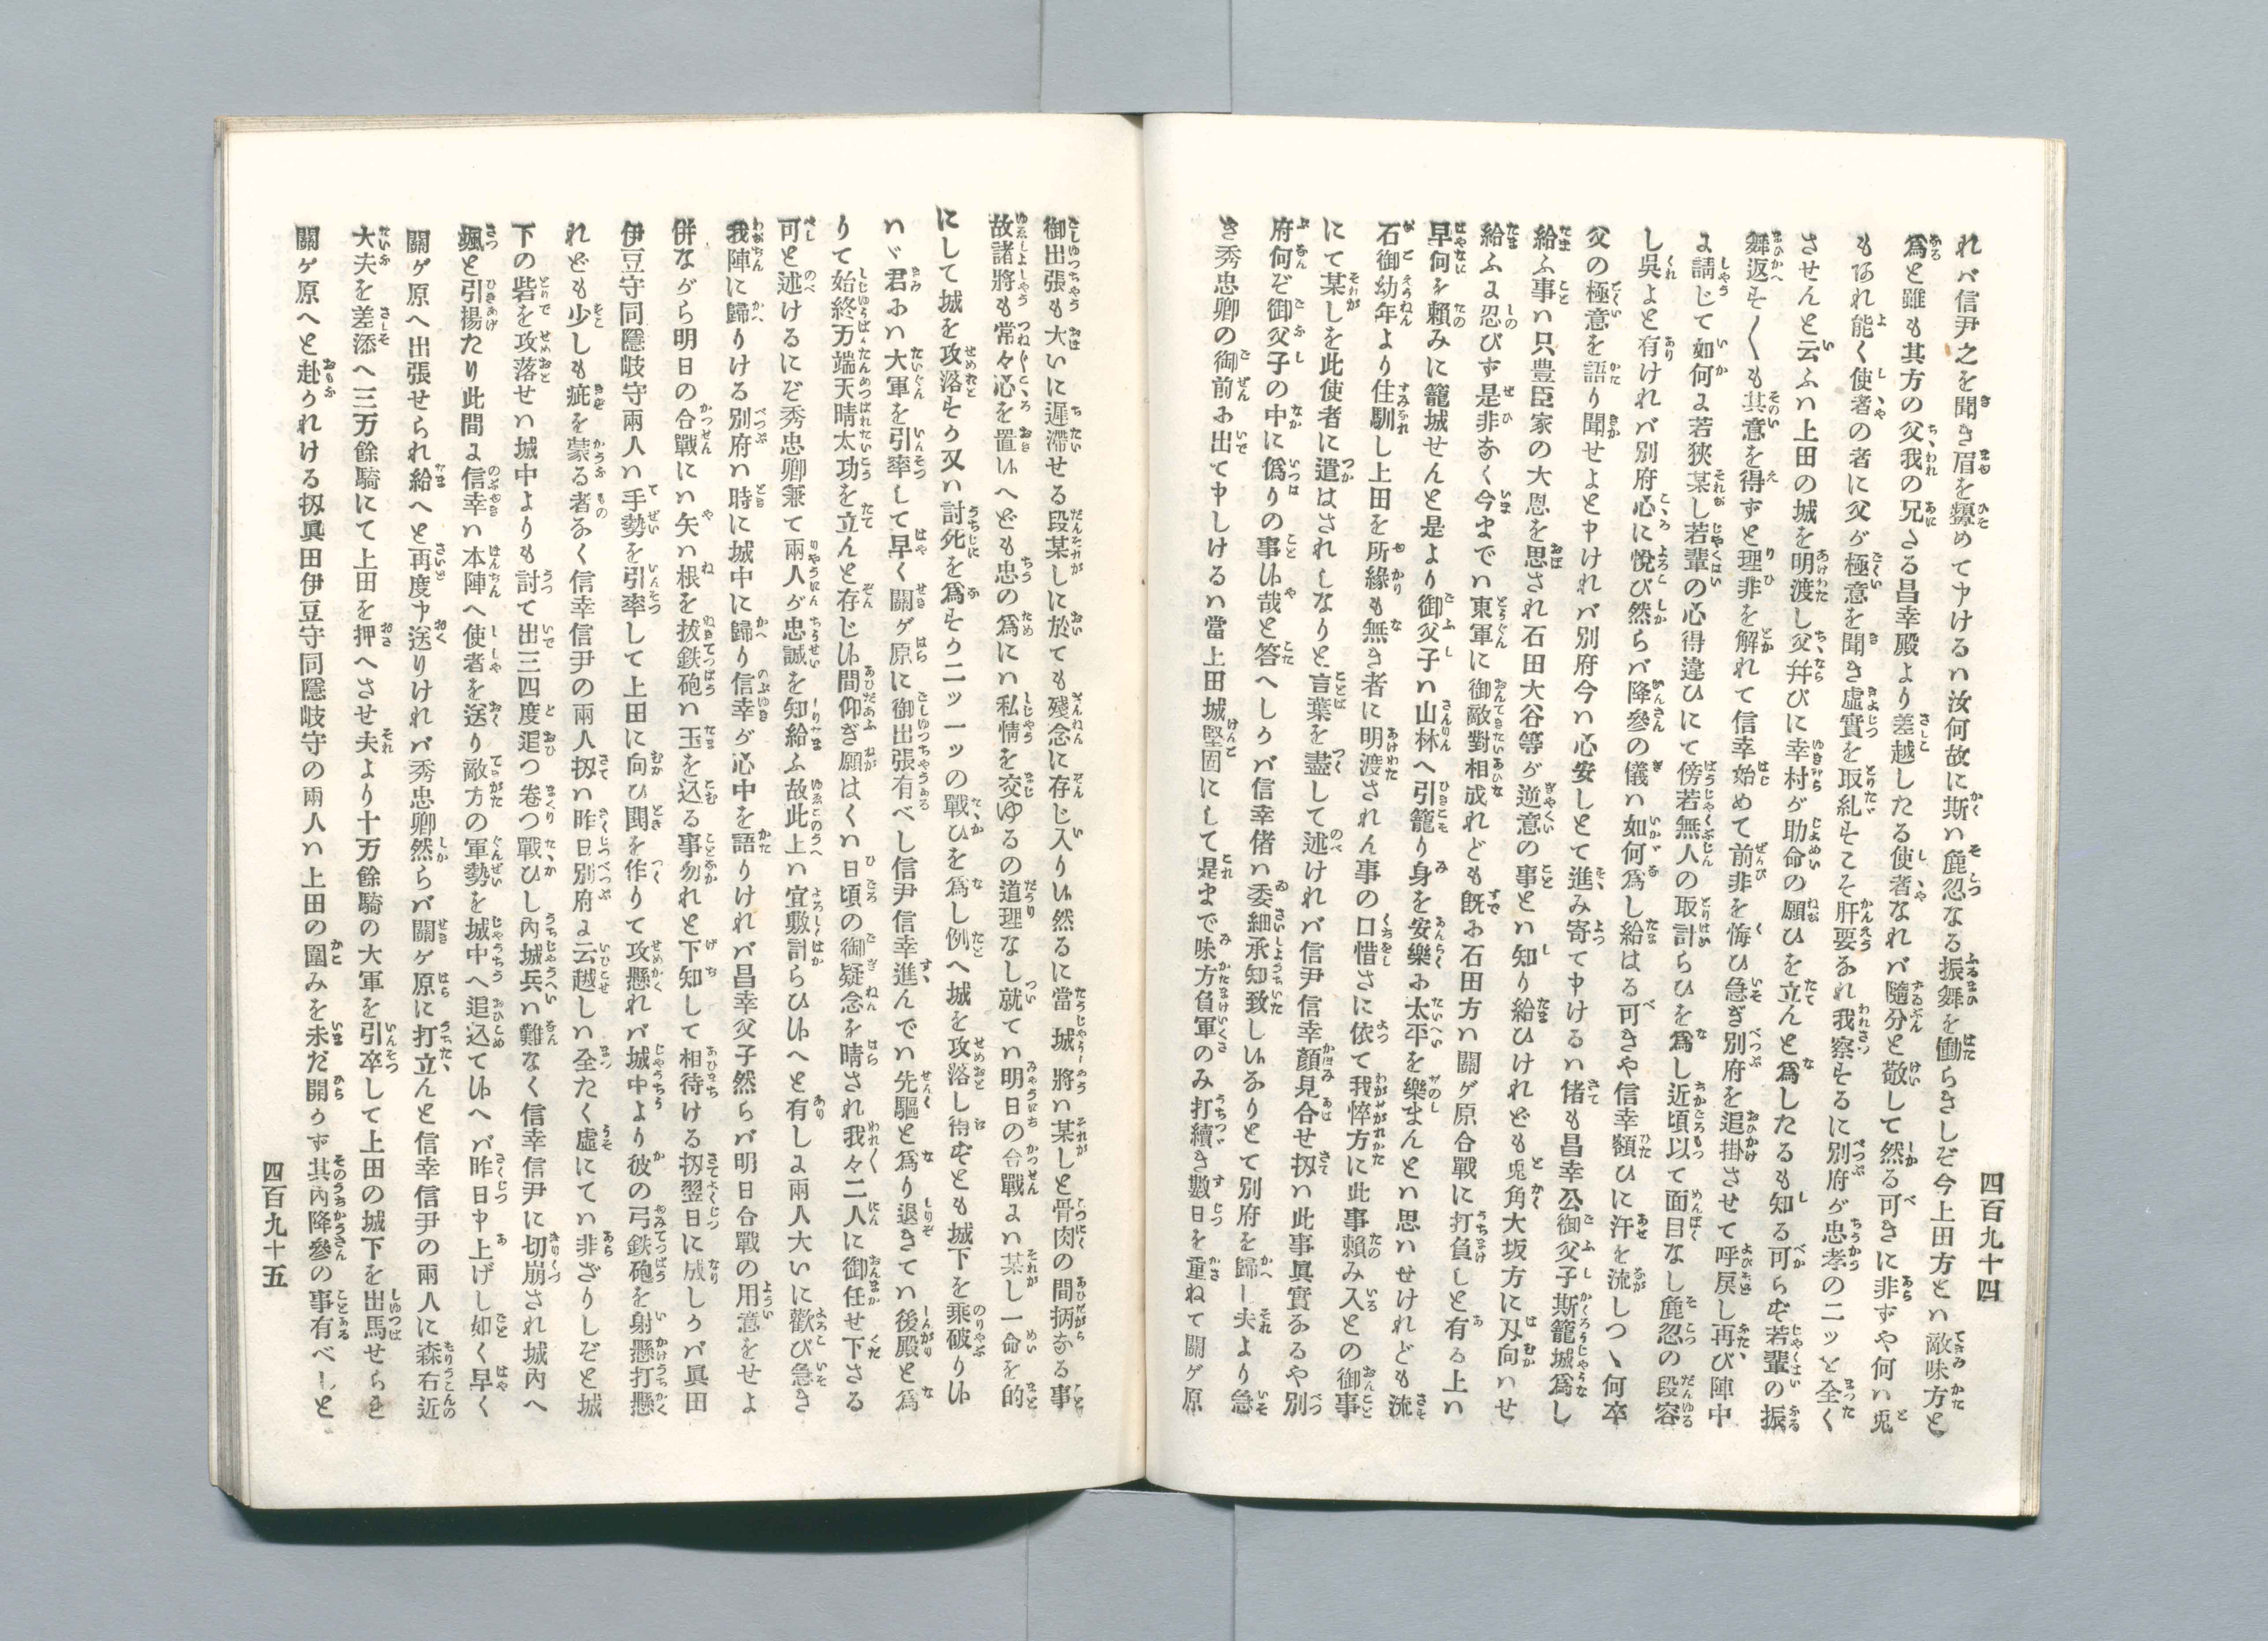 四百九十四
れバ信尹之を聞き眉を顰めて申けるハ汝何故に斯ハ麁忽なる振舞を働らきしぞ今上田方とハ敵味方と
爲と雖も其方の父我の兄さる昌幸殿より差越したる使者なれバ隨分と敬して然る可きに非ずや何ハ兎
もあれ能く使者の者に父が極意を聞き虛實を取糺すこそ肝要なれ我察するに別府が忠孝の二ッを全く
させんと云ふハ上田の城を明渡し父幷びに幸村が助命の願ひを立んと爲したるも知る可らず若輩の振
舞返す〲も其意を得ずと理非を解れて信幸始めて前非を悔ひ急ぎ別府を追掛させて呼戻し再び陣中
に請じて如何に若狹某し若輩の心得違ひにて傍若無人の取計らひを爲し近頃以て面目なし麁忽の段容
し吳よと有けれバ別府心に悅び然らバ降參の儀ハ如何爲し給はる可きや信幸額ひに汗を流しつゝ何卒
父の極意を語り聞せよと申けれバ別府今ハ心安しとて進み寄て申けるハ偖も昌幸公御父子斯籠城爲し
給ふ事ハ只豊臣家の大恩を思され石田大谷等が逆意の事とハ知り給ひけれども兎角大坂方に刄向ハせ
給ふに忍びず是非なく今までハ東軍に御敵對相成れども旣に石田方ハ關ゲ原合戰に打負しと有る上ハ
早何を賴みに籠城せんと是より御父子ハ山林へ引籠り身を安樂に太平を樂まんとハ思ハせけれども流
石御幼年より住馴し上田を所緣も無き者に明渡されん事の口惜さに依て我悴方に此事賴み入との御事
にて某しを此使者に遣はされしなりと言葉を盡して述けれバ信尹信幸顏見合せ扨ハ此事眞實なるや別
府何ぞ御父子の中に僞りの事い哉と答へしかバ信幸偖ハ委細承知致しいなりとて別府を歸し夫より急
き秀忠卿の御前に出て申しけるハ當上田城堅固にして是まで味方負軍のみ打續き數日を重ねて關ゲ原
御出張も大いに遲滯せる段某しに於ても殘念に存じ入りい然るに當城將ハ某しと骨肉の間柄なる事
故諸將も常々心を置いへども忠の爲にハ私情を交ゆるの道理なし就てハ明日の合戰にハ某し一命を的
にして城を攻落すか又ハ討死を爲すか二ッ一ッの戰ひを爲し例へ城を攻落し得ずとも城下を乘破りい
ハヾ君にハ大軍を引率して早く關ゲ原に御出張有べし信尹信幸進んでハ先驅と爲り退きてハ後殿と爲
りて始終万端天晴太功を立んと存じい間仰ぎ願はくハ日頃の御疑念を晴され我々二人に御任せ下さる
可と述けるにぞ秀忠卿兼て兩人が忠誠を知給ふ故此上ハ宜敷計らひいへと有しに兩人大いに歡び急き
我陣に歸りける別府ハ時に城中に歸り信幸が心中を語りけれバ昌幸父子然らバ明日合戰の用意をせよ
併ながら明日の合戰にハ矢ハ根を拔鉄砲ハ玉を込る事勿れと下知して相待ける扨翌日に成しかバ眞田
伊豆守同隱岐守兩人ハ手勢を引率して上田に向ひ鬨を作りて攻懸れバ城中より彼の弓鉄砲を射懸打懸
れども少しも疵を蒙る者なく信幸信尹の兩人扨ハ昨日別府に云越しハ全たく虛にてハ非ざりしぞと城
下の砦を攻落せハ城中よりも討て出三四度追つ卷つ戰ひし內城兵ハ難なく信幸信尹に切崩され城內へ
颯と引揚たり此間に信幸ハ本陣へ使者を送り敵方の軍勢を城中へ追込ていへバ昨日申上げし如く早く
關ゲ原へ出張せられ給へと再度申送りけれバ秀忠卿然らバ關ゲ原に打立んと信幸信尹の兩人に森右近
大夫を差添へ三万餘騎にて上田を押へさせ夫より十万餘騎の大軍を引卒して上田の城下を出馬せられ
關ゲ原へと赴かれける扨眞田伊豆守同隱岐守の兩人ハ上田の圍みを未だ開かず其內降參の事有べしと
四百九十五